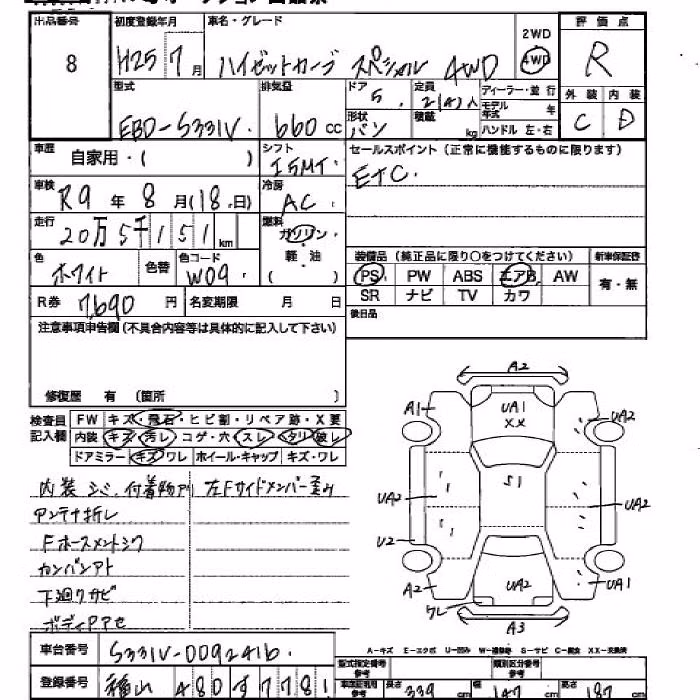 出品番号 初度登録年月 車名・グレード 2WD 評価点
8 H25 7月 ハイゼットカーゴ スペシャル 4WD 4WD R
型式 排気量 ドア 定員 ディーラー・並行 外装 内装
EBD-S331V. 660cc 5. 2(4)人 モデル年式 年 C D
形状 バン 積載 kg ハンドル 左・右
車歴 自家用・( ) シフト I5MT. セールスポイント(正常に機能するものに限ります)
ETC.
車検 R9年8月(18.日) 冷房 AC.
走行 20万5千151km 燃料 ガソリン・軽油 ( )
色 ホワイト 色替 色コード W09.
装備品(純正品に限り○をつけてください) 新車保証書
PS PW ABS エアB AW 有・無
SR ナビ TV カワ
R券 7,690円 名変期限 月 日
後日品
注意事項申告欄(不具合内容等は具体的に記入して下さい)
修復歴 有 (箇所 )
検査員記入欄
FW キズ・飛石・ヒビ割・リペア跡・X要
内装 キズ・汚レ・コゲ・穴・スレ・タリ・破レ
ドアミラー キズ・ワレ ホイール・キャップ キズ・ワレ
内装 シミ、付着物アリ 左Fサイドメンバー歪み
アンテナ折レ
Fホースメントシワ
カンバンアト
下廻りサビ
ボディPアセ
A2
A1 UA1 XX UA2
UA2 S1 UA2
U2
A2 UA2 UA1
ワレ A3
A-キズ E-エクボ U-凹み W-補修跡 S-サビ C-腐食 XX-交換済
車台番号 S331V-0092416.
型式指定番号 参考 類別区分番号 参考
登録番号 480 す 7781
長さ 339cm 幅 147cm 高さ 187cm